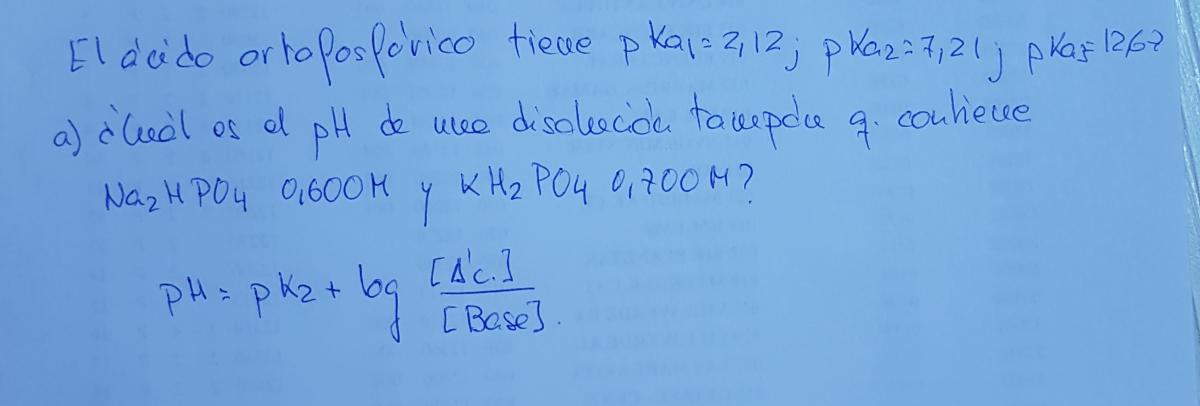 El ácido ortofosfórico tiene pKa1=2,12; pKa2=7,21; pKa3=12,67
a) ¿Cuál es el pH de una disolución tampón q. contiene
Na2HPO4 0,600M y KH2PO4 0,700M?
pH = pK2 + log [Ác.]
[Base].